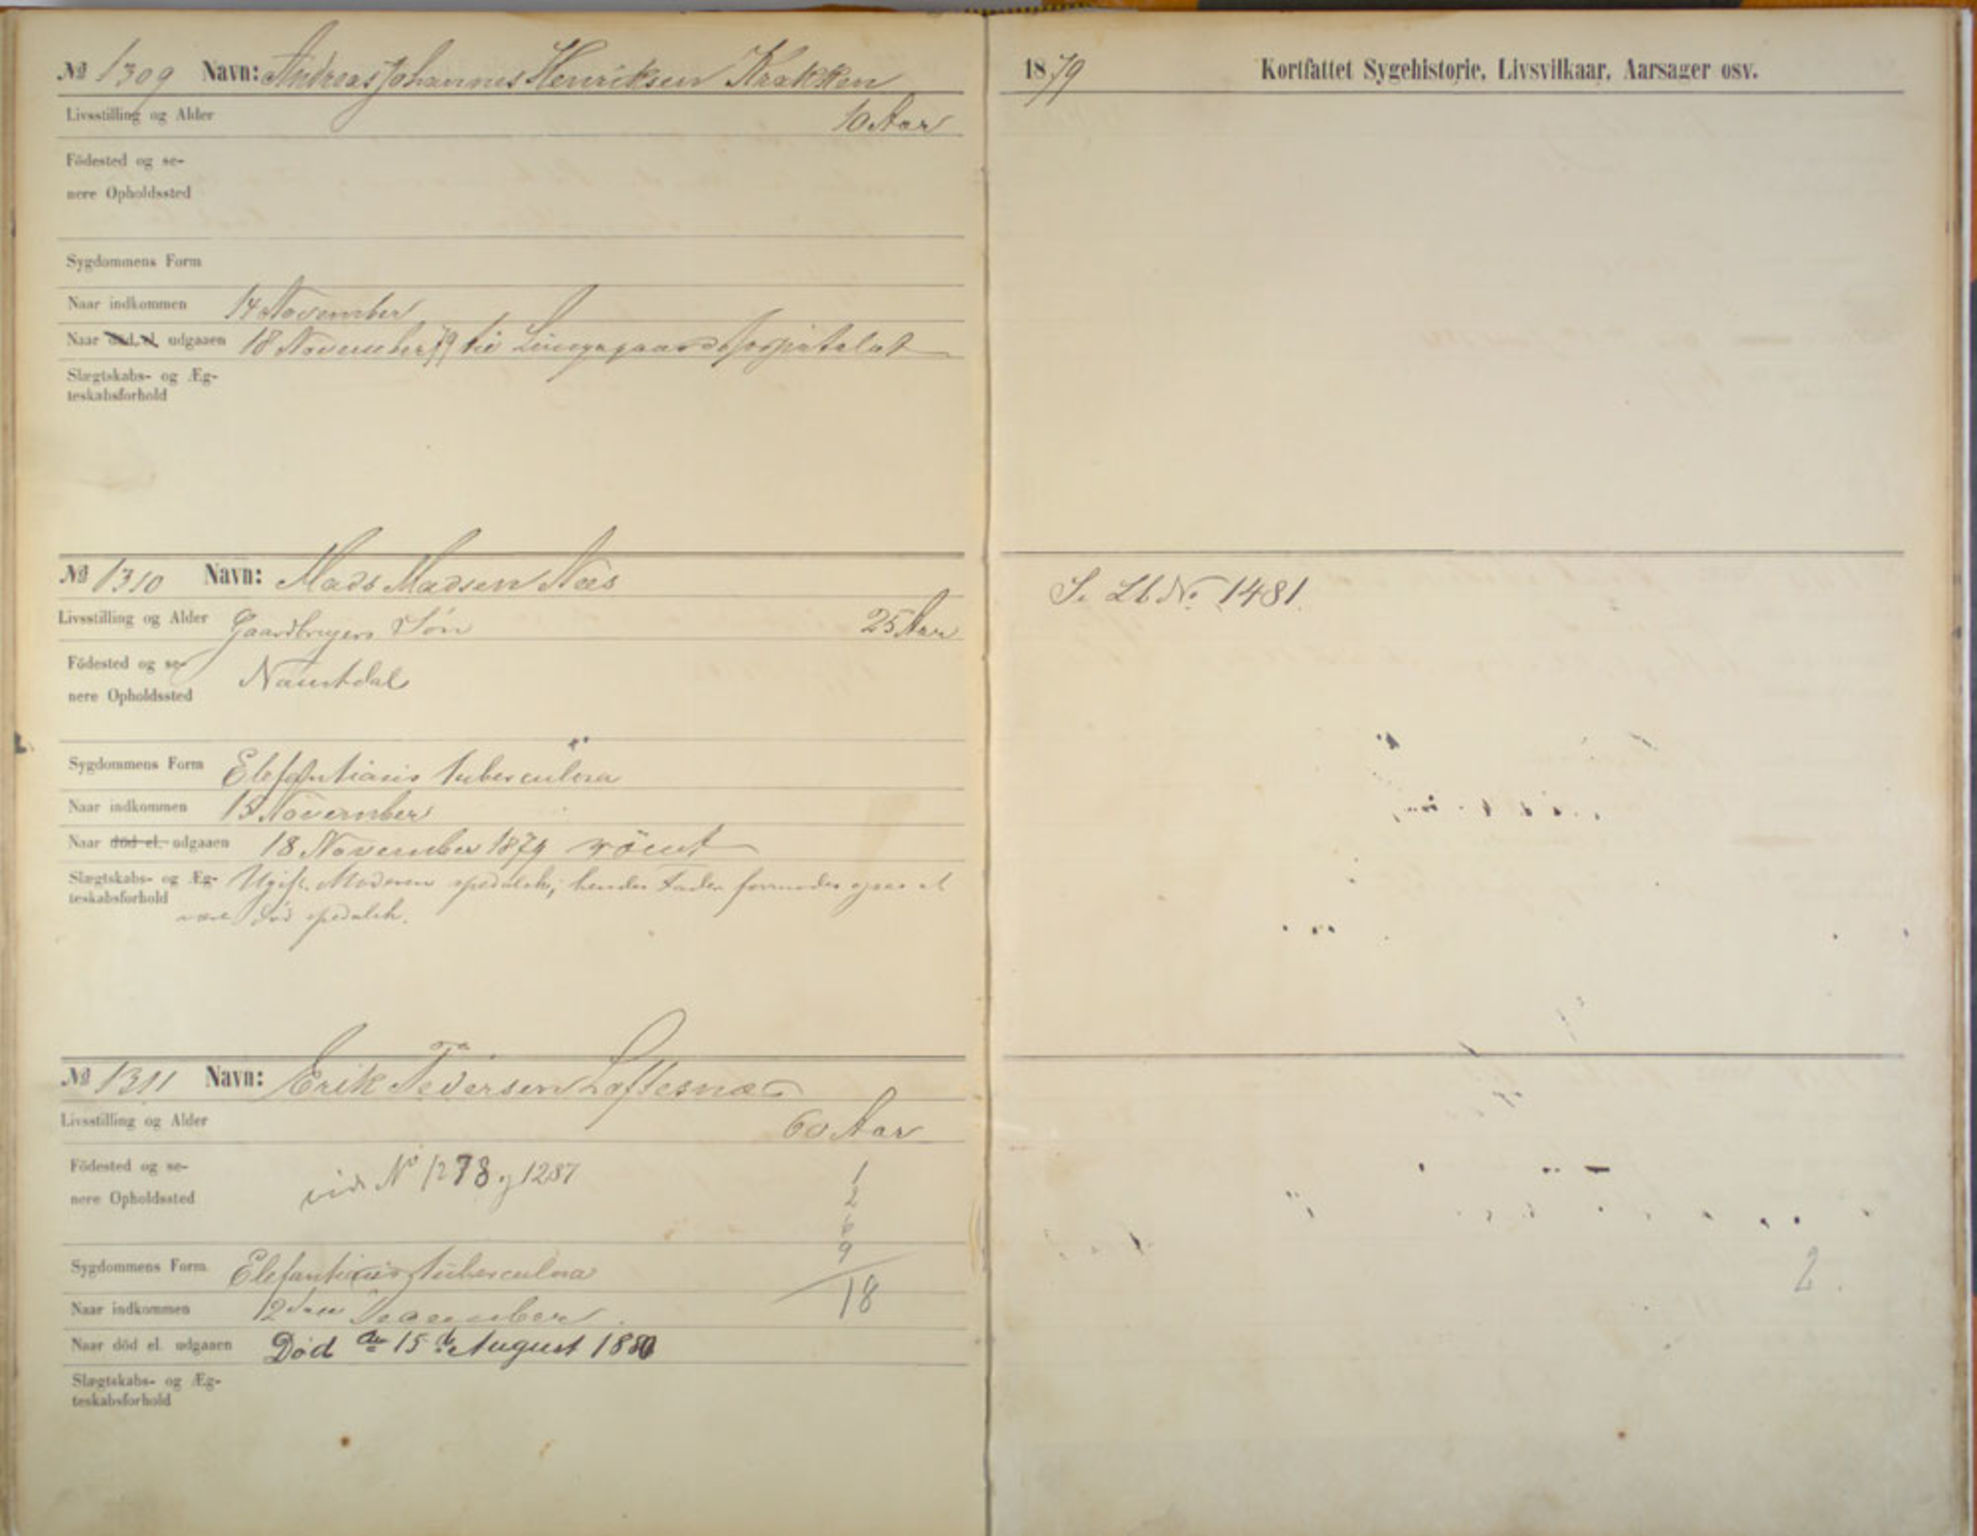 № 1309 Navn: Andreas Johannes Henriksen Krakken
Livsstilling og Alder 10 Aar
Födested og se-
nere Opholdssted
Sygdommens Form
Naar indkommen 14 November
Naar död el. udgaaen 18 November 79 til Lungegaardshospitalet
Slægtskabs- og Æg-
teskabsforhold
№ 1310 Navn: Mads Madsen Næs
Livsstilling og Alder Gaardbrugers Sön 25 Aar
Födested og se-
nere Opholdssted Naustdal
Sygdommens Form Elefantiasis tuberculosa
Naar indkommen 15 November
Naar död el. udgaaen 18 November 1879 römt
Slægtskabs- og Æg-
teskabsforhold Ugift. Moderen spedalsk; hendes Fader formodes ogsaa at
være död spedalsk.
№ 1311 Navn: Erik Pedersen Loftesnæs
Livsstilling og Alder 60 Aar
Födested og se-
nere Opholdssted vide No 1278 og 1287
1
2
6
9
18
Sygdommens Form Elefantiasis tuberculosa
Naar indkommen 12 December.
Naar död el. udgaaen Död den 15de August 1880
Slægtskabs- og Æg-
teskabsforhold
1879 Kortfattet Sygehistorie, Livsvilkaar, Aarsager osv.
Se Lb No. 1481.
2.